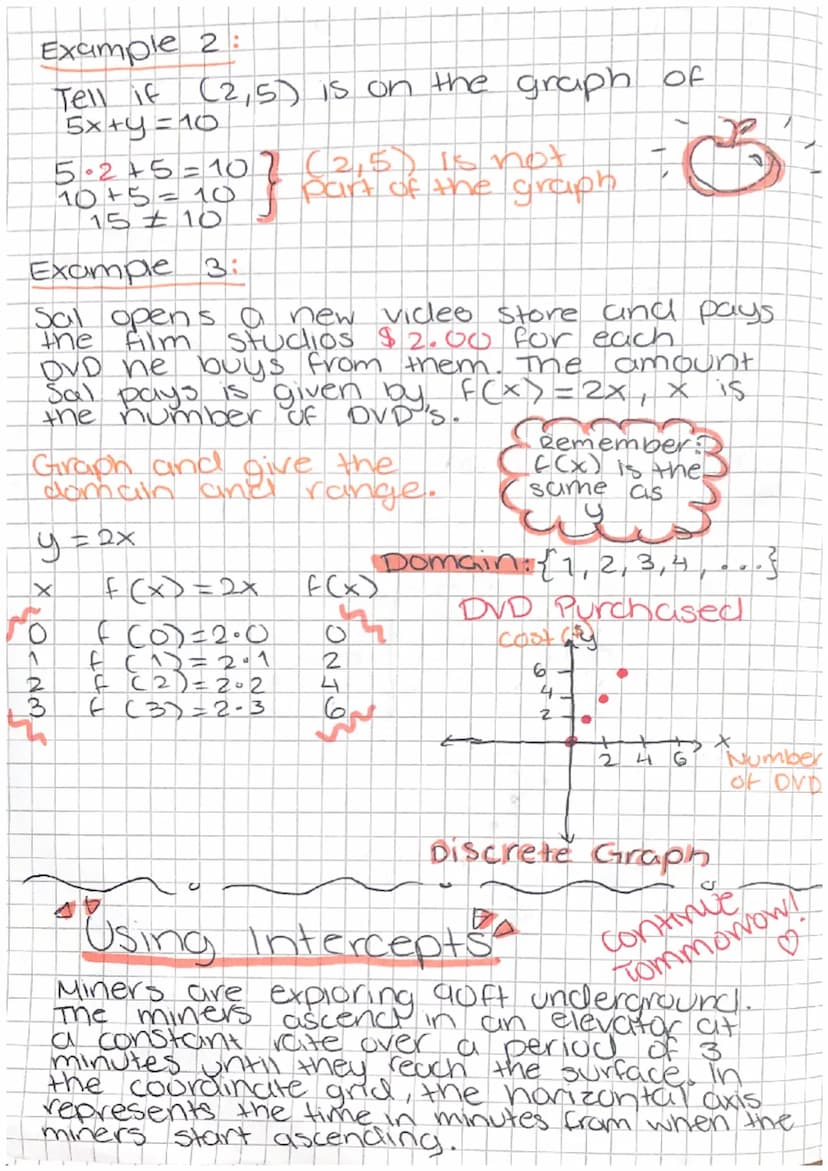 Example 2:
Tell if (2,5) is on the graph of
5x+y=10
5·2+5=10
10+5=10
15≠10
(2,5) is not
part of the graph
Example 3:
Sal opens a new video store and pays
the film studios $2.00 for each
DVD he buys from them. The amount
Sal pays is given by f(x)=2x, x is
the number of DVD's.
Graph and give the
domain and range.
Remember:
f(x) is the
same as
y
y=2x
x f(x)=2x f(x)
0 f(0)=2·0 0
1 f(1)=2·1 2
2 f(2)=2·2 4
3 f(3)=2·3 6
Domain: {1,2,3,4,...}
DVD Purchased
Cost ($) y
6
4
2
2 4 6 x
Number
of DVD
Discrete Graph
Using Intercepts
continue
tommorow!
Miners are exploring 90ft underground.
The miners ascend in an elevator at
a constant rate over a period of 3
minutes until they reach the surface. In
the coordinate grid, the horizontal axis
represents the time in minutes from when the
miners start ascending.